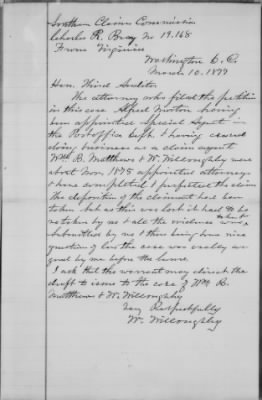 Southern Claims Commission
Charles R. Bray No 19.168
From Virginia
Washington D. C.
March 10. 1877
Hon. Third Auditor
The attorney who filed the petition
in this case Alfred Morton having
been appointed Special Agent in
the Postoffice Dept. & having ceased
doing business as a claim agent
Wm B. Matthews & W. Willoughby were
about Nov. 1875 appointed attorneys
& have completed & perfected the claim
The deposition of the claimant had been
taken but as this was lost it had to be
retaken by us & also the evidence was taken &
submitted by us & there being some nice
questions of law the case was orally ar-
gued by me before the
I ask that the warrant may direct the
draft to issue to the care of Wm B.
Matthews & W. Willoughby
Very Respectfully
W. Willoughby